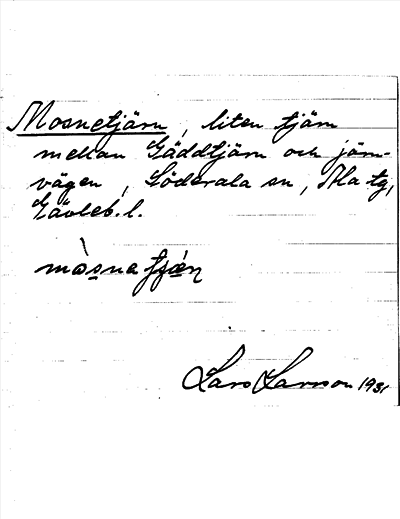 Mosnetjärn, liten tjärn
mellan Gäddtjärn och järn-
vägen, Söderala sn, Ala tg,
Gävleb. l.
mòsnatjæ̀ɳ
Lars Larsson 1931